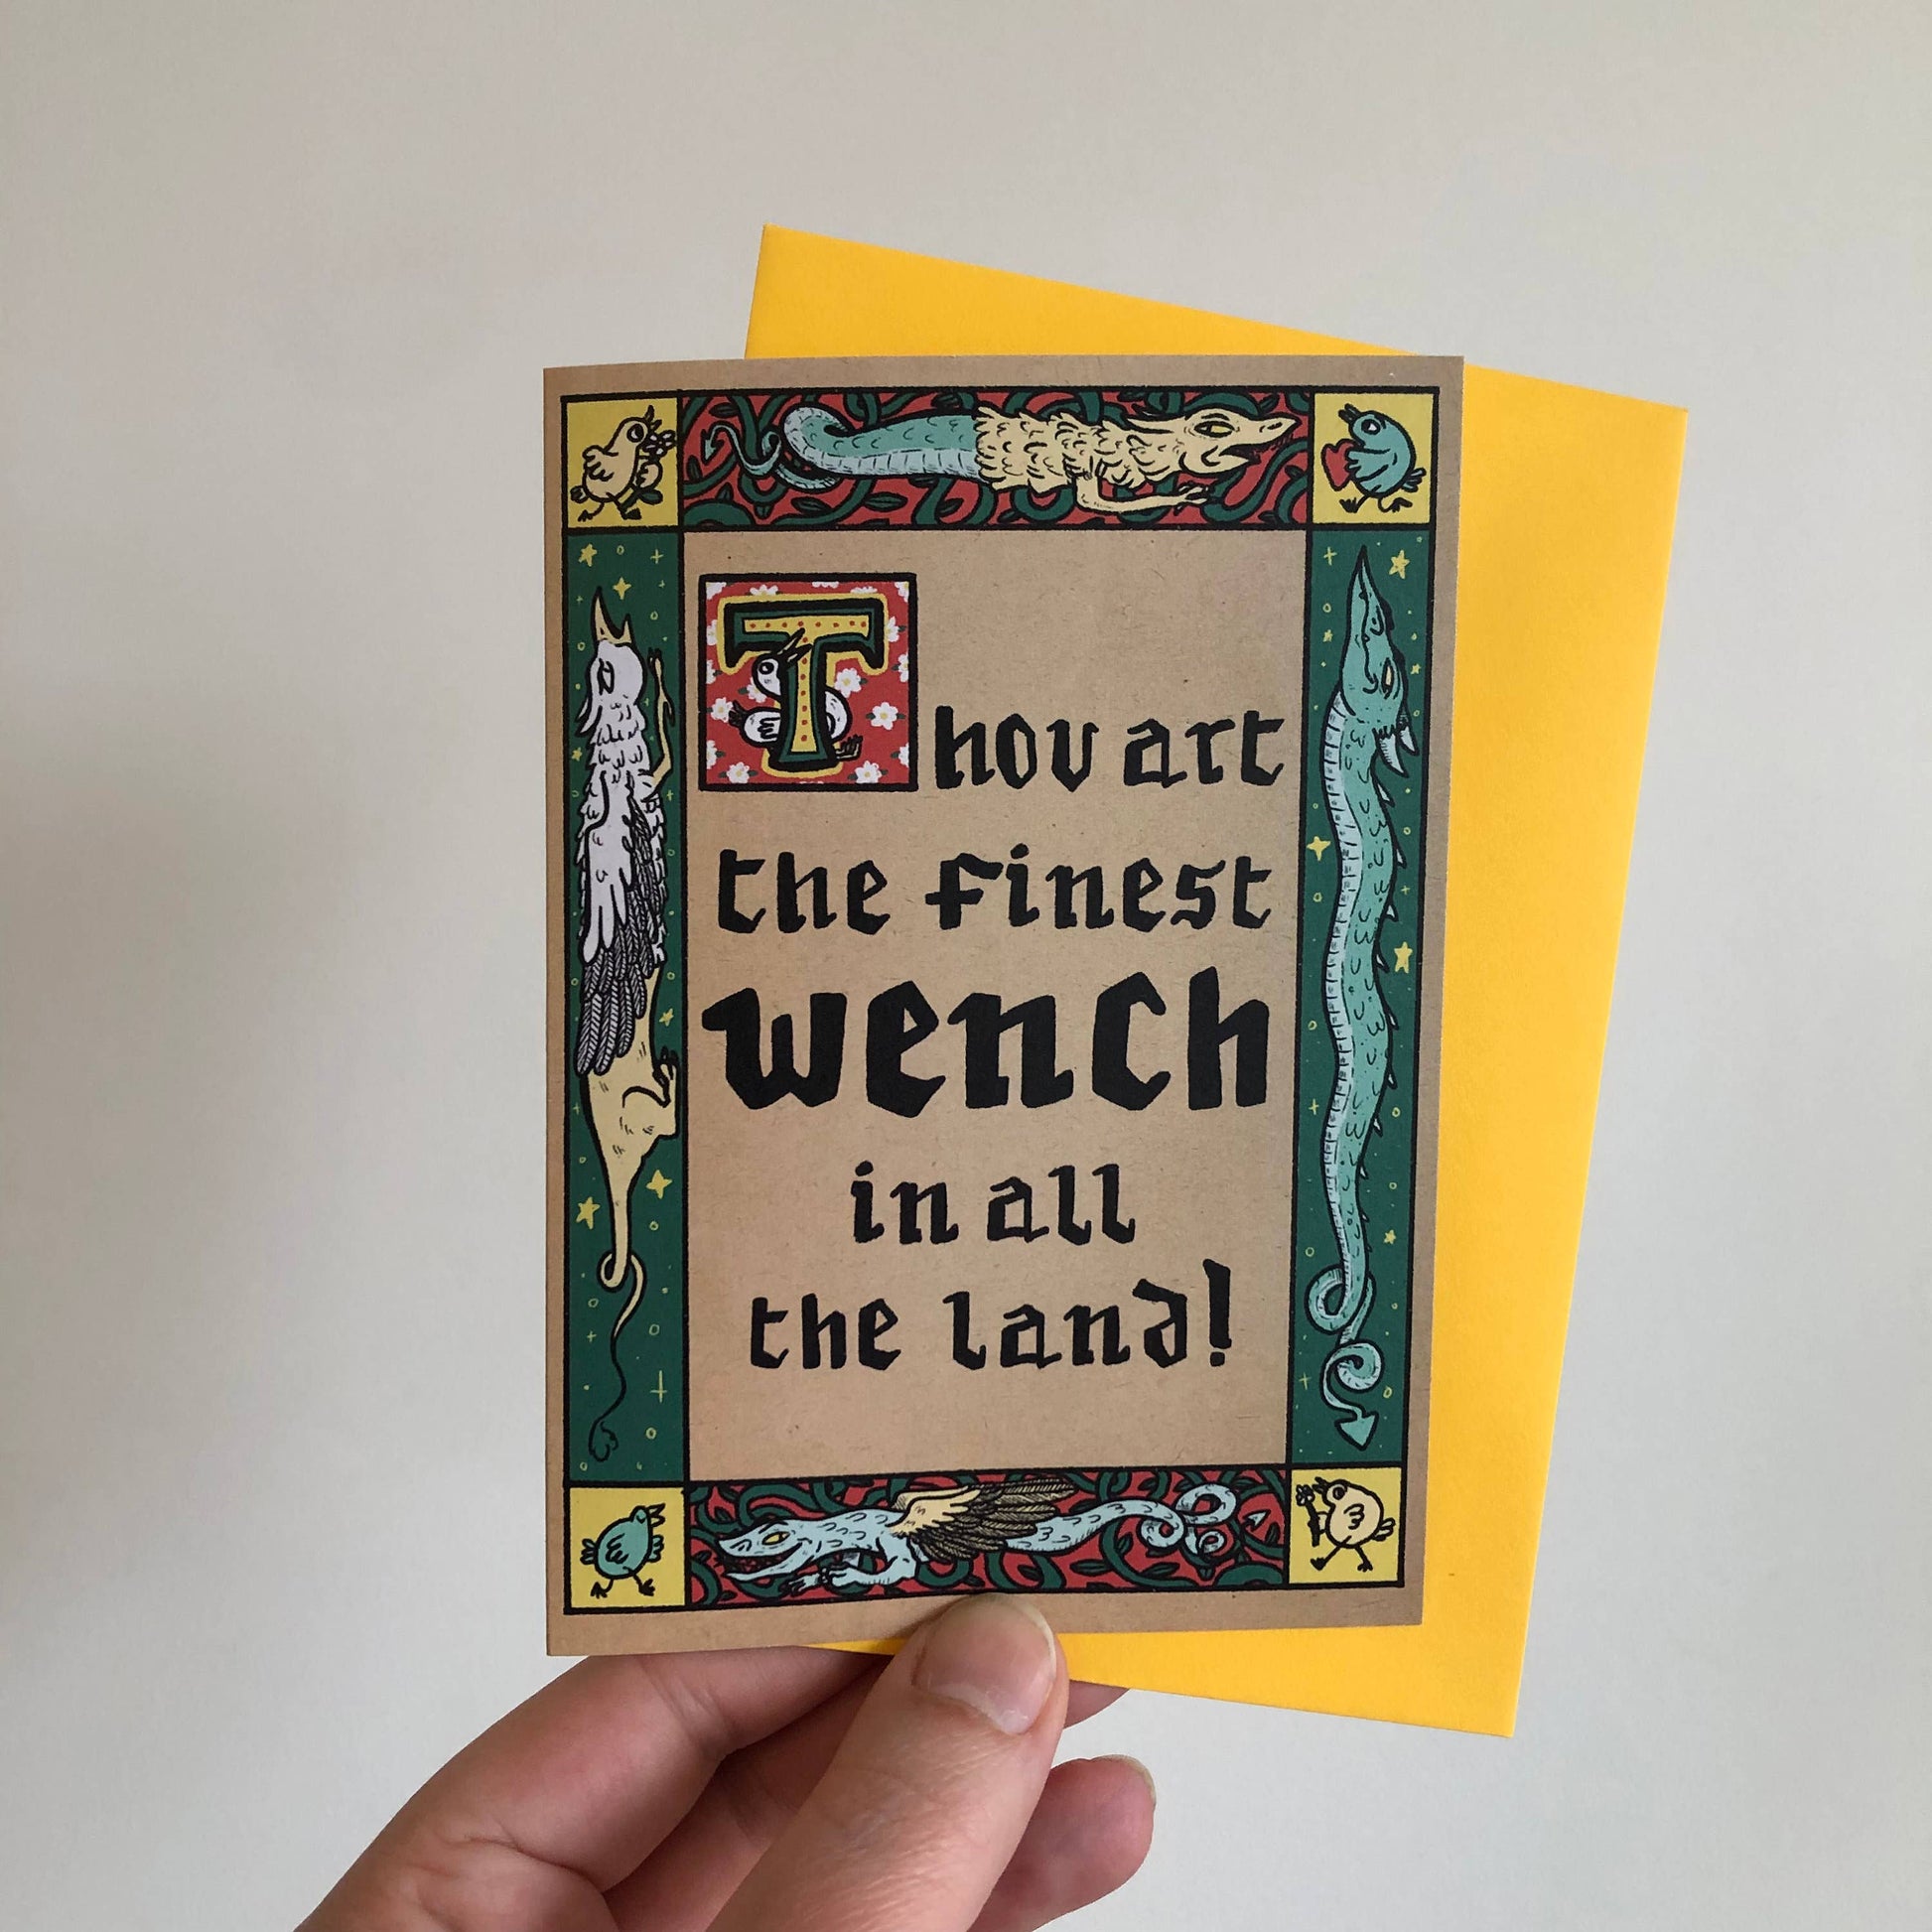 Thov art
the finest
wench
in all
the land!